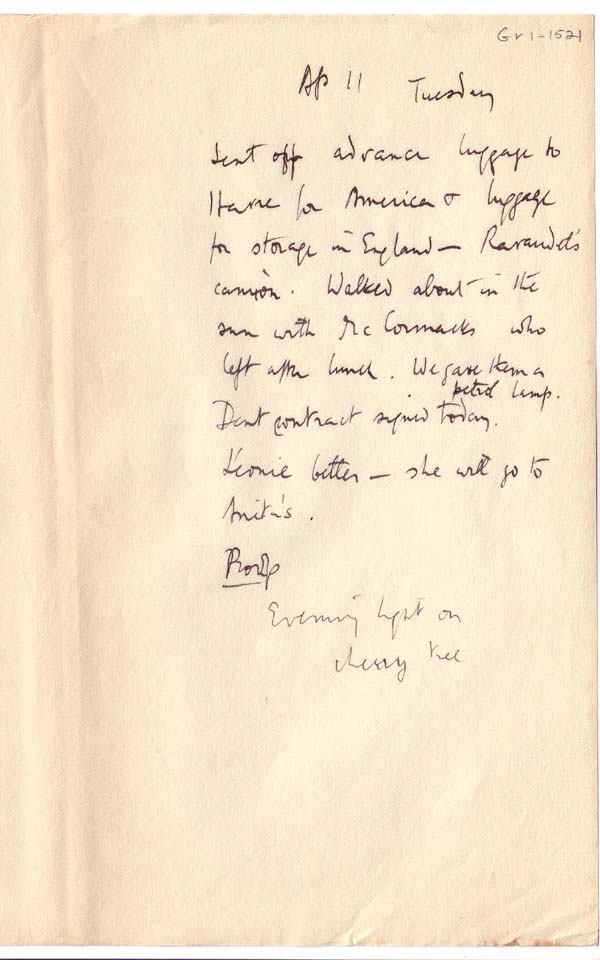 Gr1-1521
Ap 11 Tuesday
Sent off advance luggage to
Havre for America & luggage
for storage in England — Ravaudet's
camion. Walked about in the
sun with McCormacks who
left after lunch. We gave them a
petrol lamp.
Dent contract signed today.
Léonie better — she will go to
Anita's.
Evening light on
cherry tree